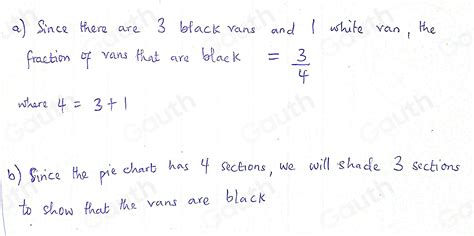 a) Since there are 3 black vans and 1 white van, the
fraction of vans that are black = 3/4
where 4 = 3+1
b) Since the pie chart has 4 sections, we will shade 3 sections
to show that the vans are black